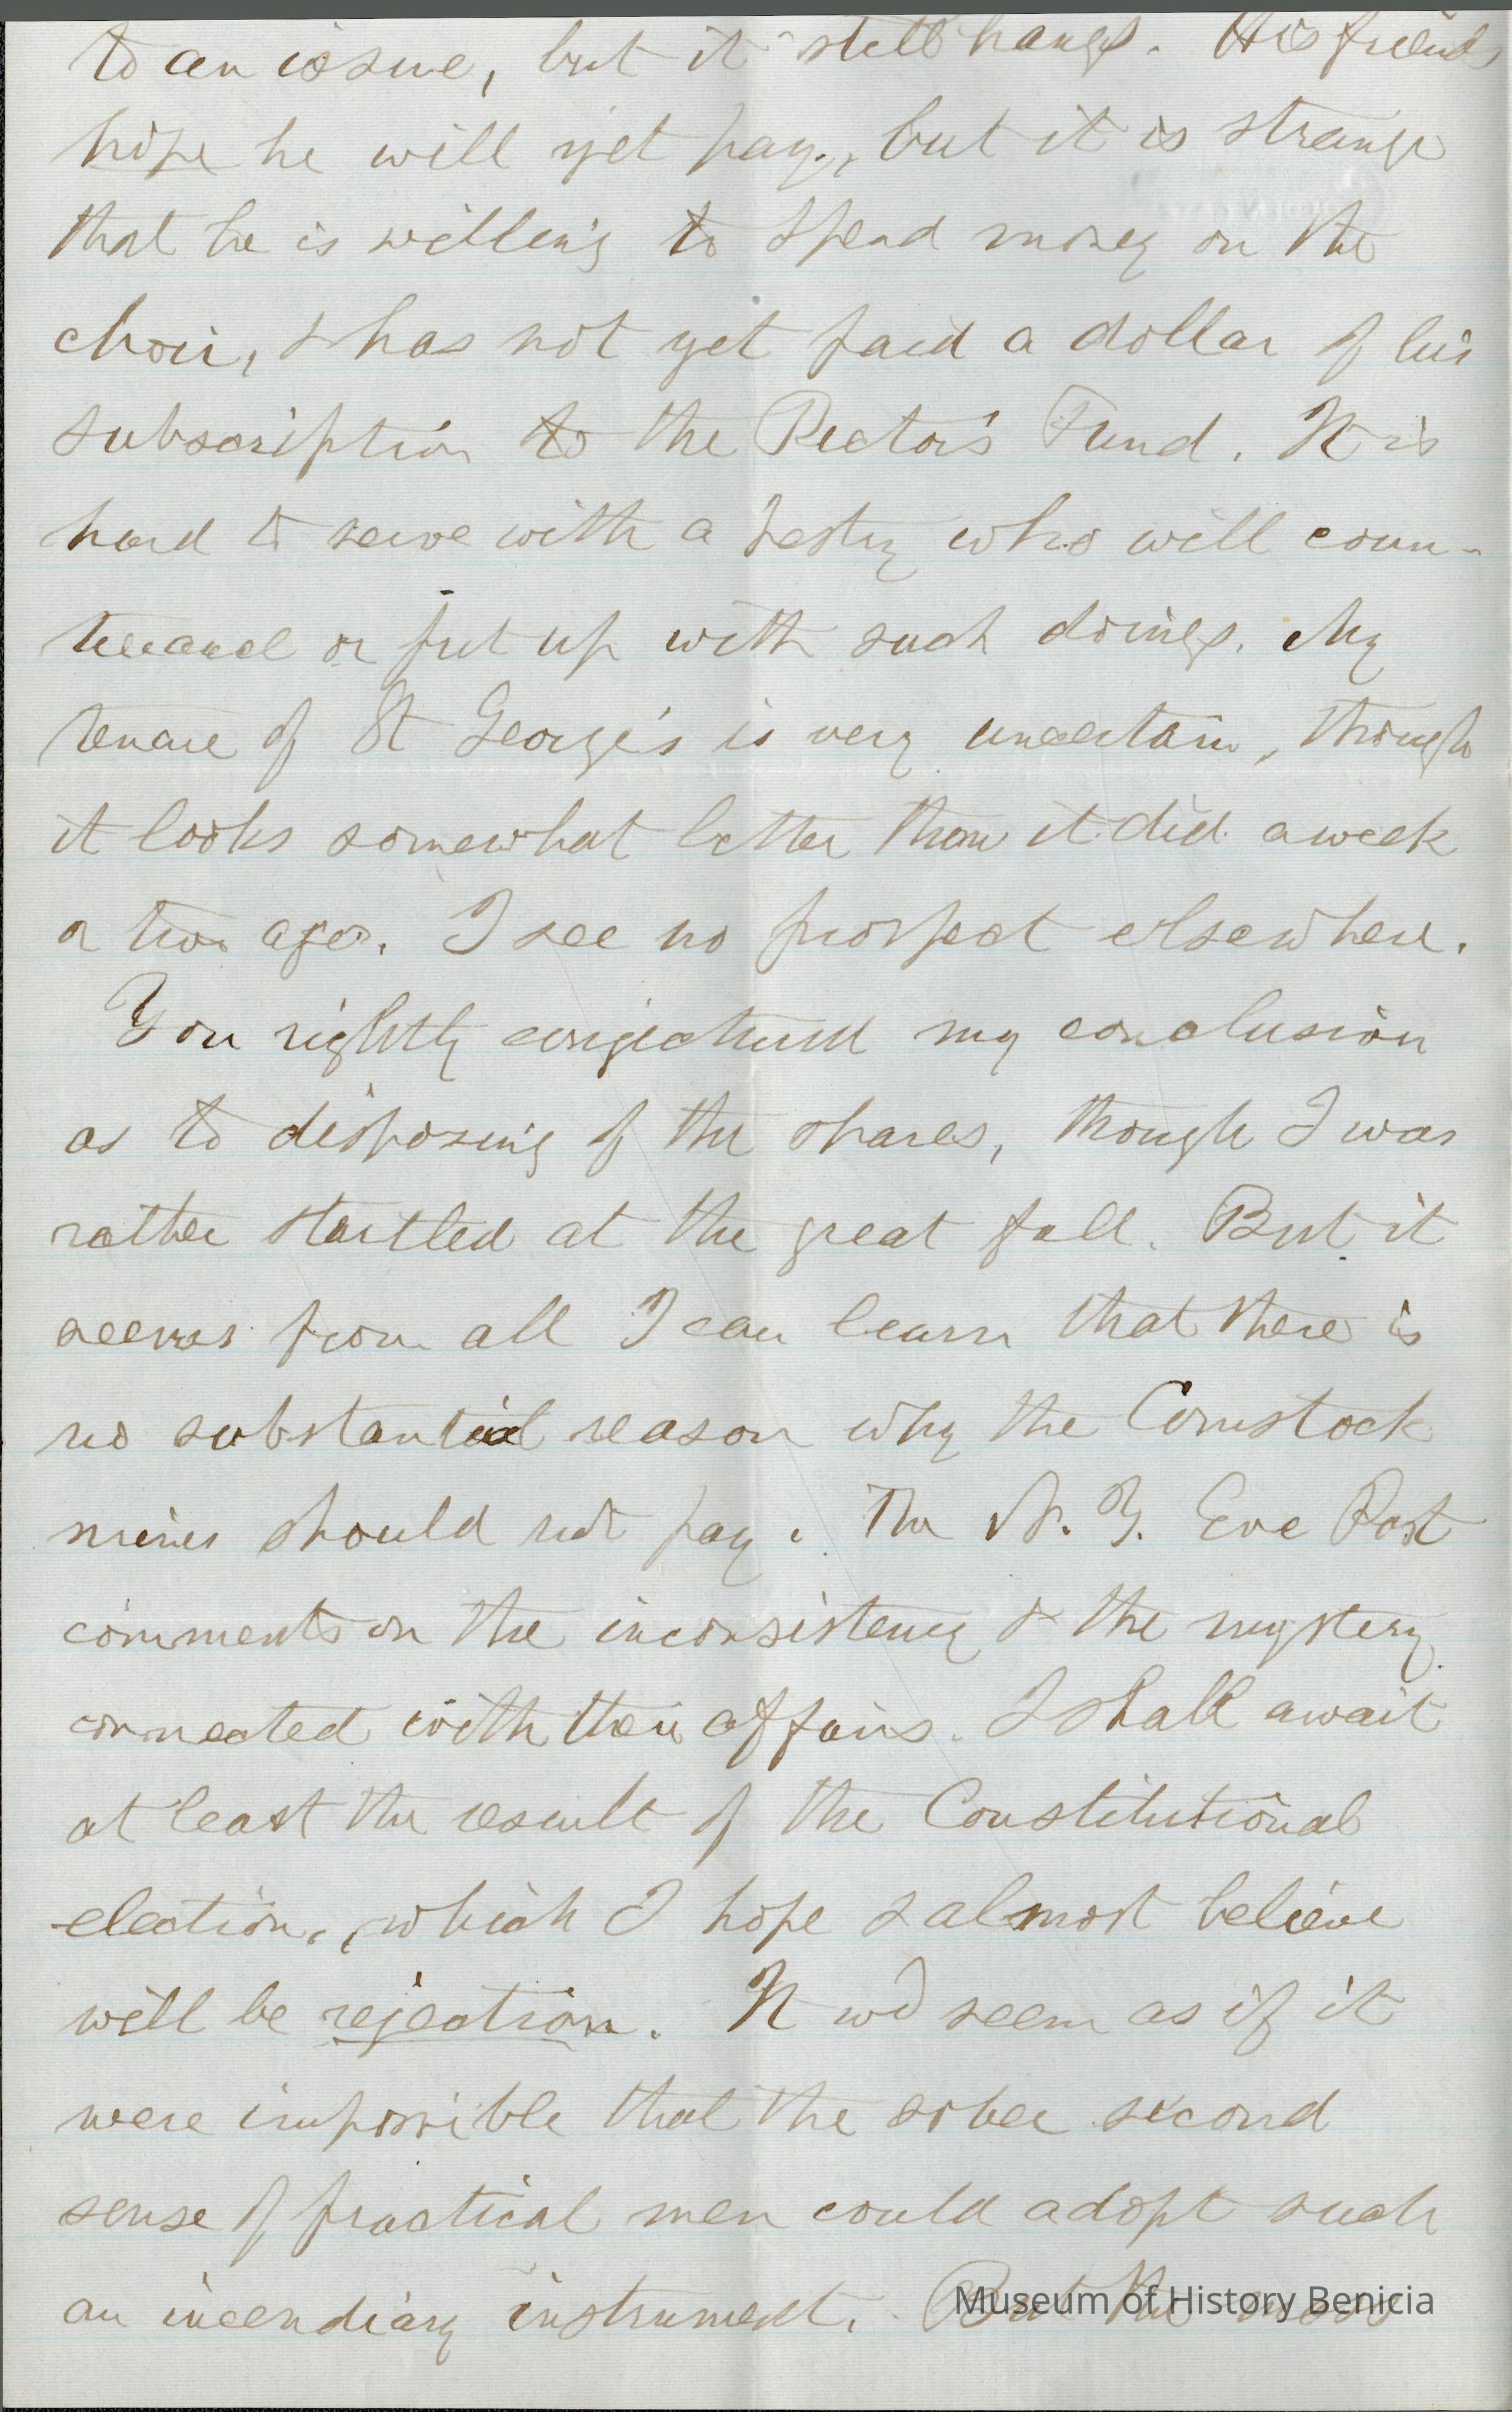 to an issue, but it still hangs. His friends
hope he will yet pay, but it is strange
that he is willing to spend money on the
choir, & has not yet paid a dollar of his
subscription to the Rector's Fund. It is
hard to serve with a Vestry who will coun-
tenance or put up with such doings. My
tenure of St George's is very uncertain, though
it looks somewhat better than it did a week
or two ago. I see no prospect elsewhere.
You rightly conjectured my conclusion
as to disposing of the shares, though I was
rather startled at the great fall. But it
seems from all I can learn that there is
no substantial reason why the Comstock
mines should not pay. The N. Y. Eve Post
comments on the inconsistency & the mystery
connected with their affairs. I shall await
at least the result of the Constitutional
election, which I hope & almost believe
will be rejection. It wd seem as if it
were impossible that the sober second
sense of practical men could adopt such
an incendiary instrument. But the
Museum of History Benicia